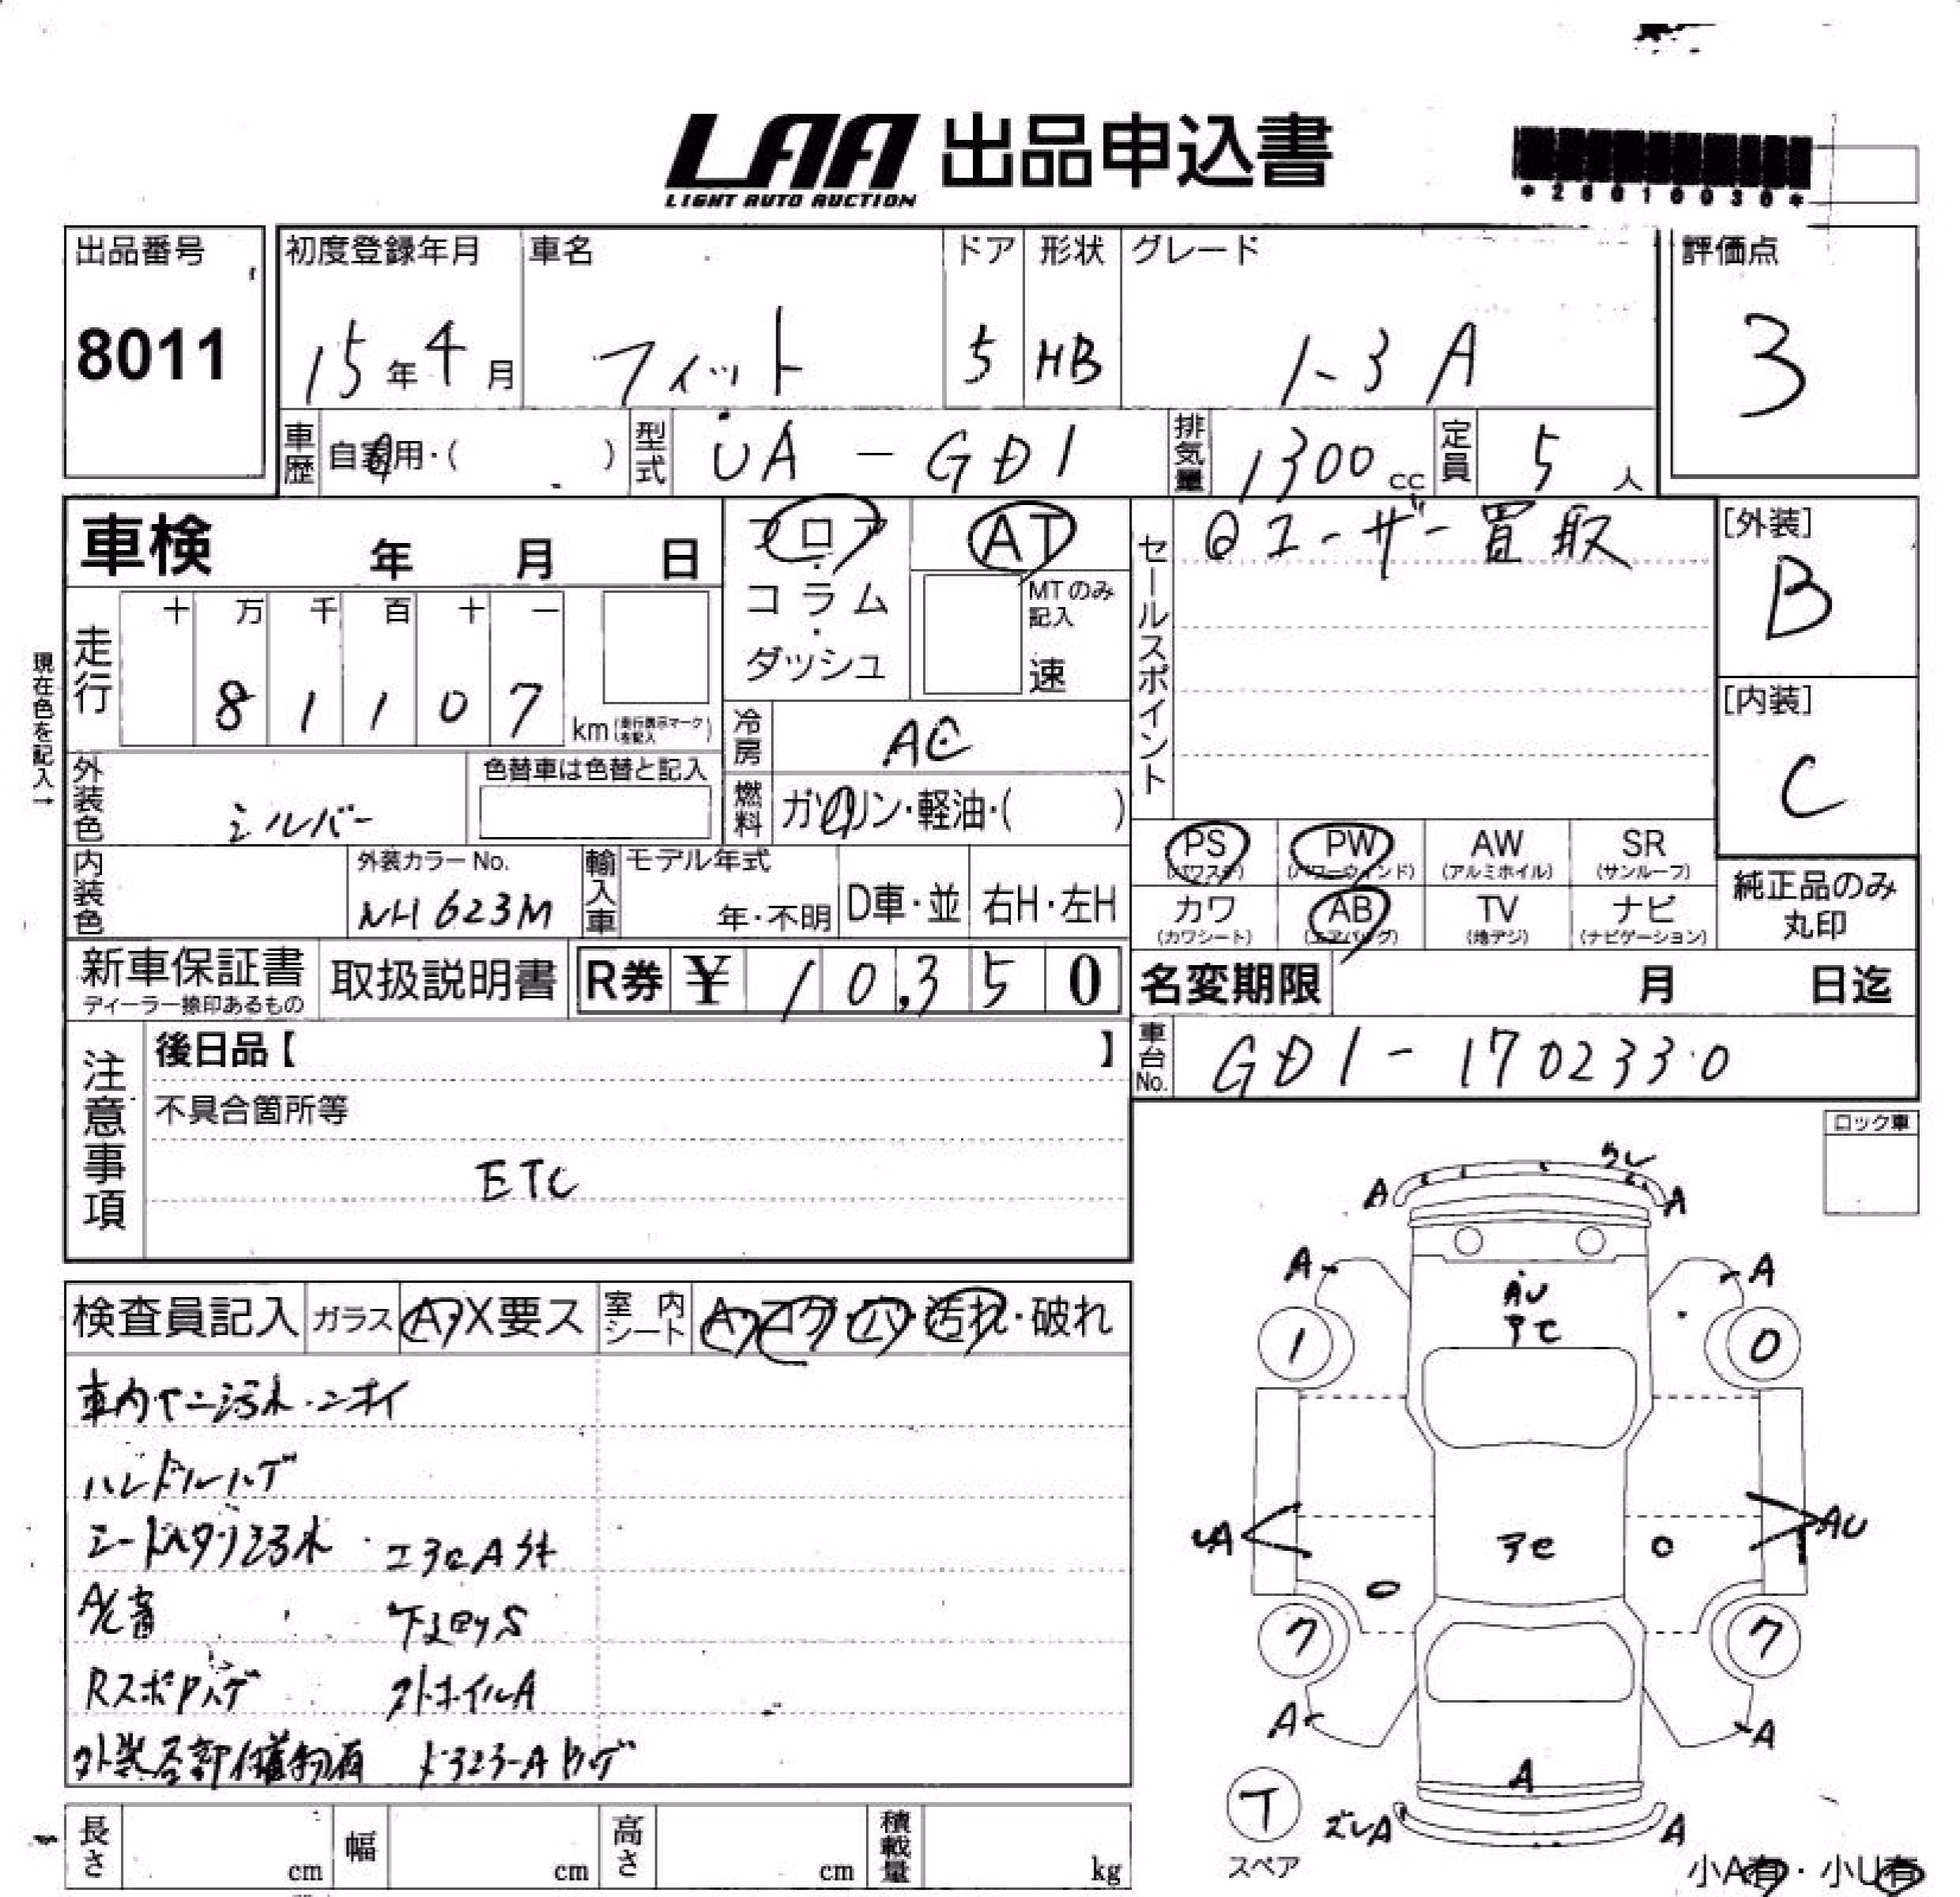 LAA 出品申込書
LIGHT AUTO AUCTION
出品番号
8011
初度登録年月
15年4月
車名
フィット
ドア
5
形状
HB
グレード
1-3 A
評価点
3
車歴
自家用・( )
型式
UA - GD1
排気量
1300 cc
定員
5 人
車検 年 月 日
フロア・コラム・ダッシュ
AT
MTのみ記入
速
セールスポイント
ユーザー買取
[外装]
B
[内装]
C
走行
十 万 千 百 十 一
8 1 1 0 7 km
現在色を記入→
冷房
AC
外装色
シルバー
色替車は色替と記入
燃料
ガソリン・軽油・( )
内装色
外装カラーNo.
NH623M
輸入車
モデル年式
年・不明
D車・並
右H・左H
PS (パワステ)
PW (パワーウインド)
AW (アルミホイル)
SR (サンルーフ)
カワ (カワシート)
AB (エアバッグ)
TV (地デジ)
ナビ (ナビゲーション)
純正品のみ丸印
新車保証書
ディーラー捺印あるもの
取扱説明書
R券 ¥ 10,350
名変期限 月 日迄
車台No.
GD1-1702330
注意事項
後日品【 】
不具合箇所等
ETC
ロック車
検査員記入
ガラス
A・X要ス
室内シート
A・コゲ・穴・汚れ・破れ
車内ヤニ汚れ・ニオイ
ハンドルハゲ
A/C音
外装各部
A
A
A
A
AU
1
0
A
AU
ワ
ワ
A
A
A
A
A
T
スペア
小A有・小U有
長さ cm
幅 cm
高さ cm
積載量 kg